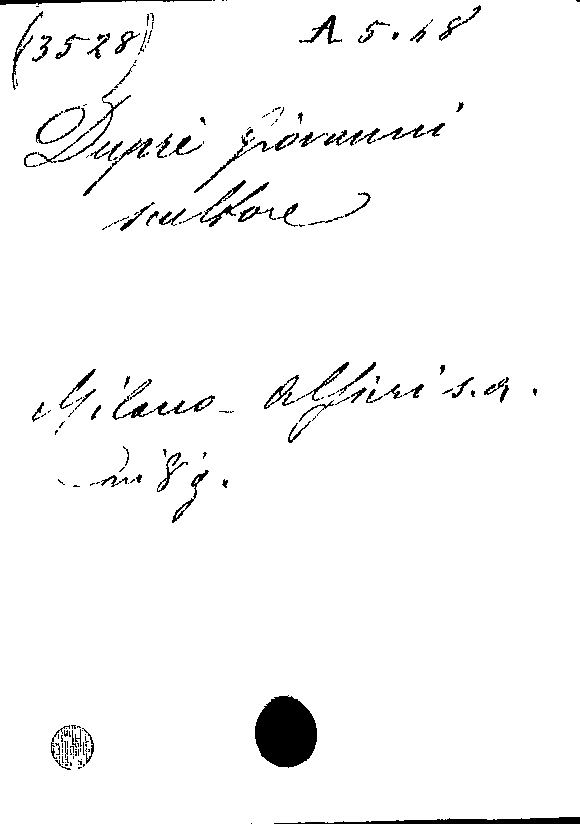 (3528) A 5.48
Duprè Giovanni
scultore
Milano - Alfieri s.a.
in 8 g.